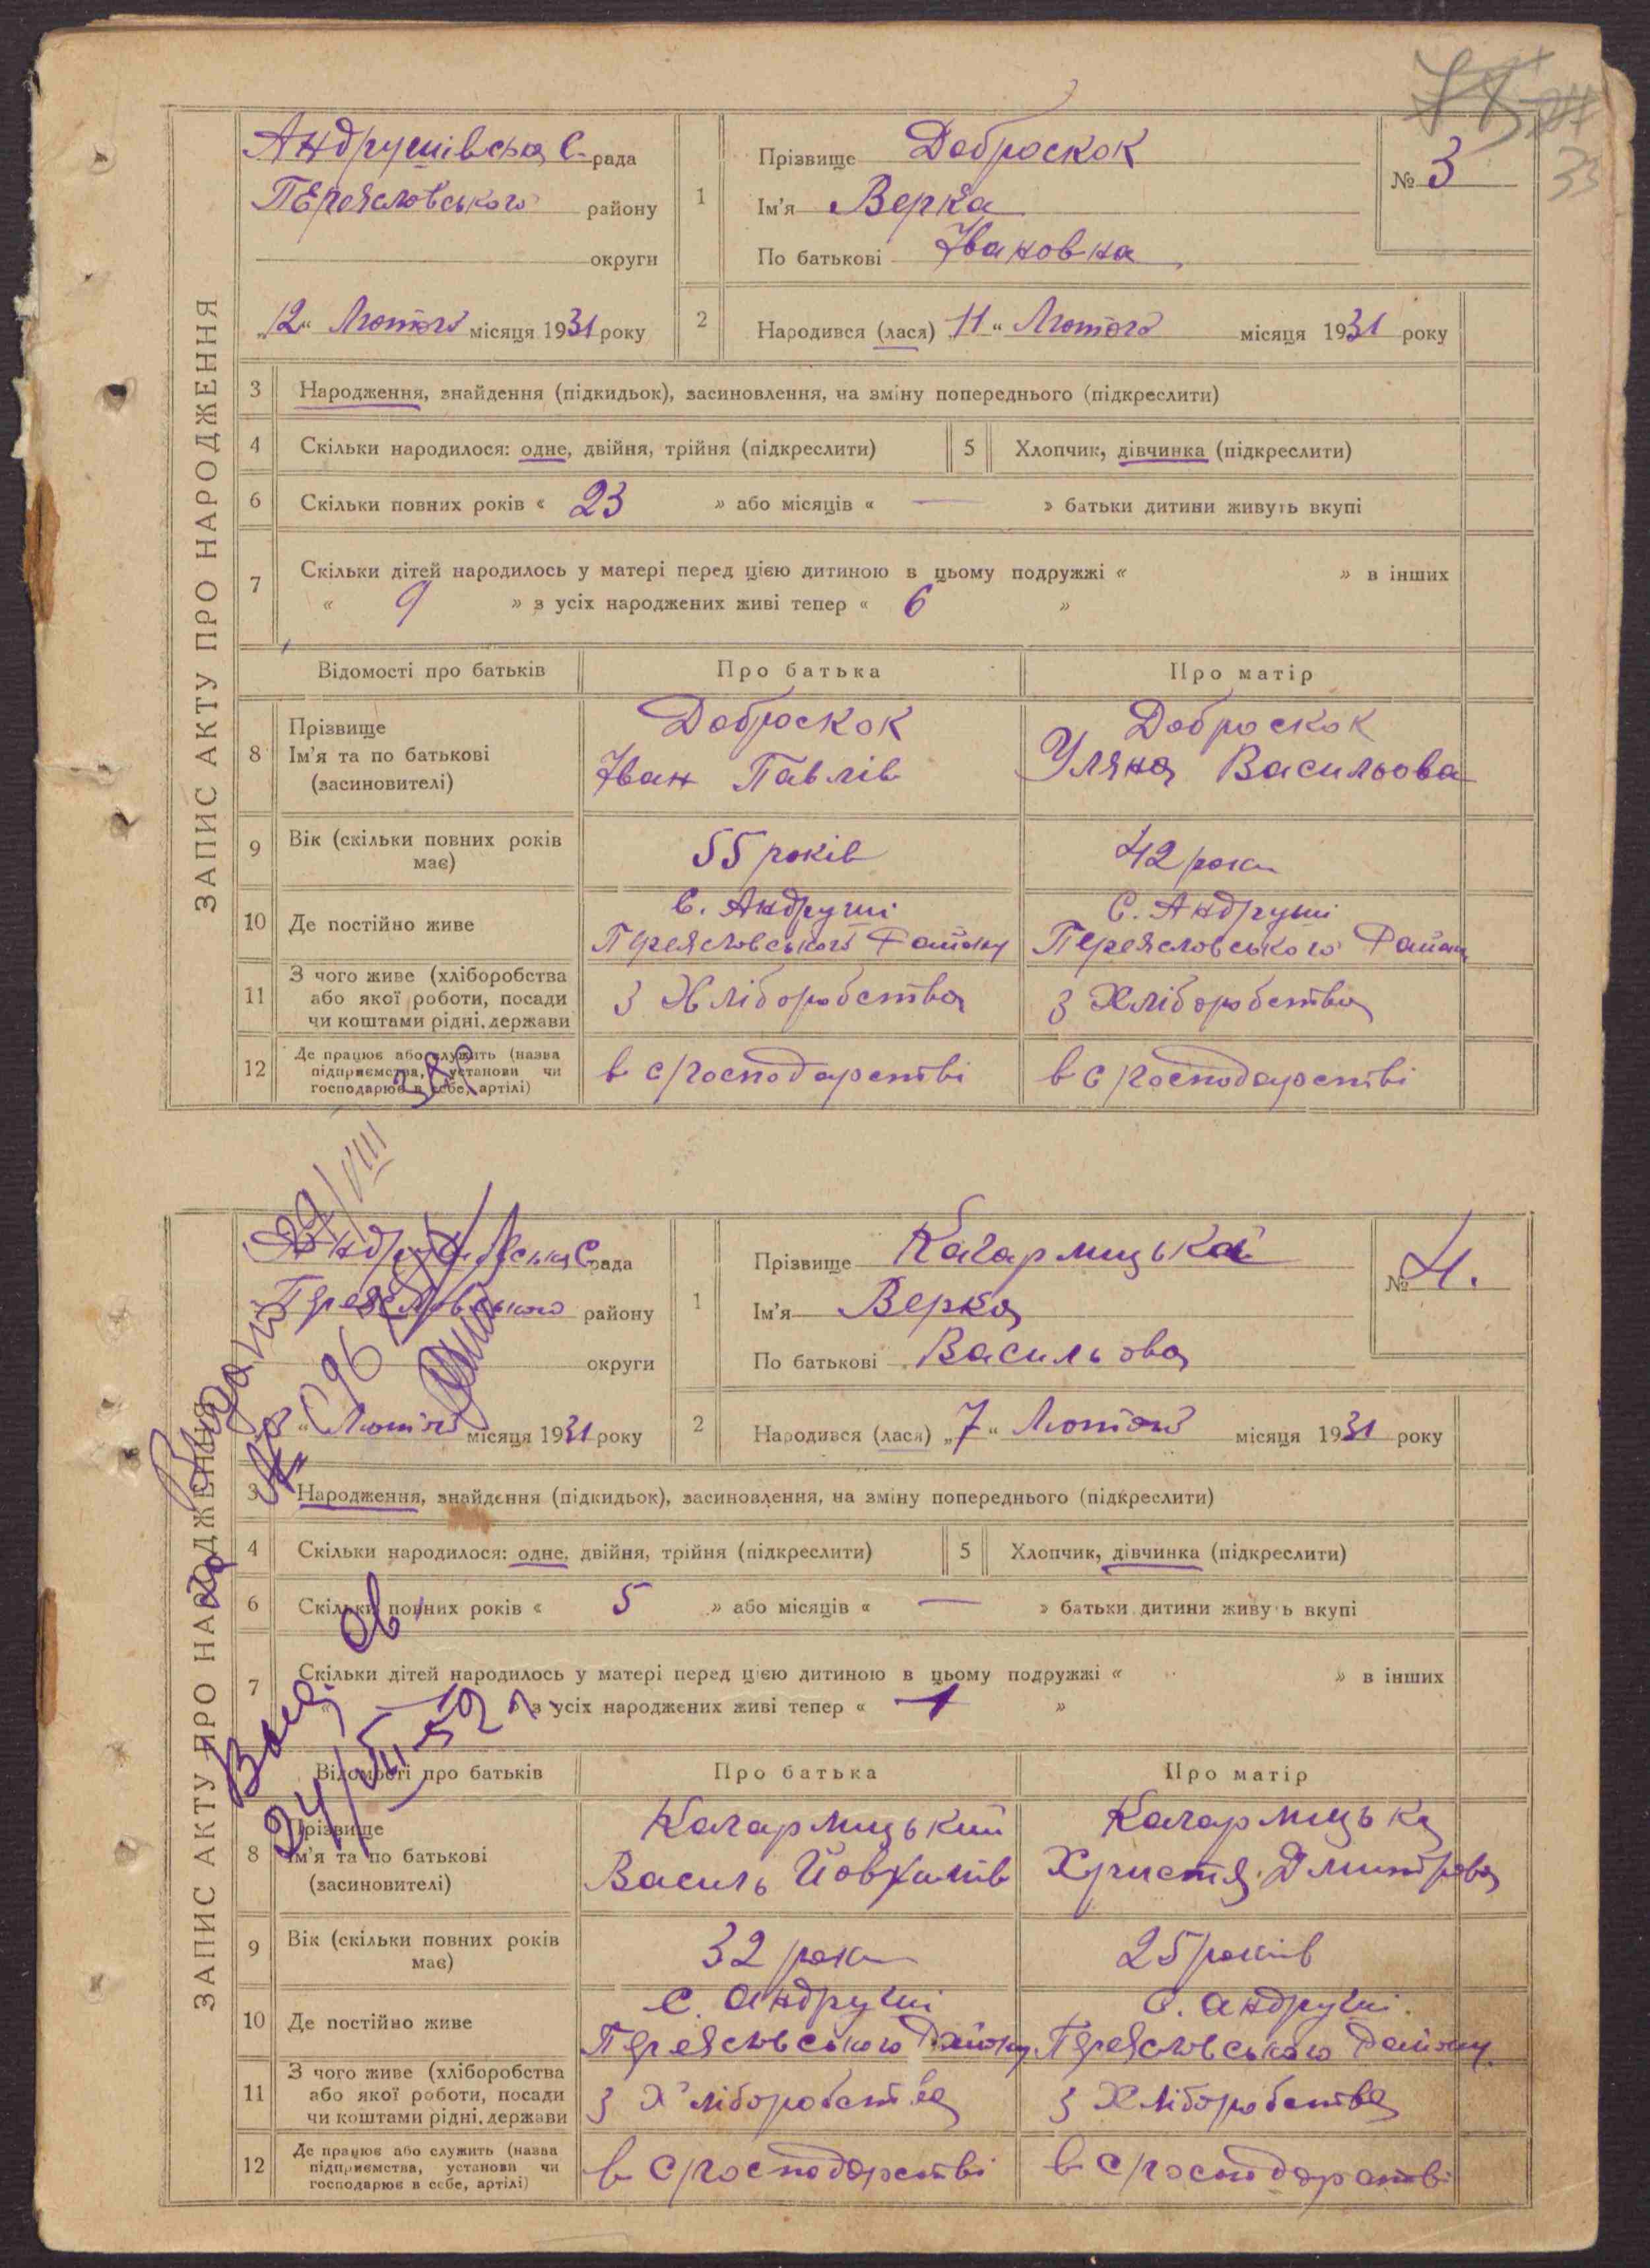 ЗАПИС АКТУ ПРО НАРОДЖЕННЯ
Андрушівська С. рада
Переясловського району
округи
„12“ Лютого місяця 1931 року
1
Прізвище Доброскок
Ім'я Верка
По батькові Івановна
№ 3
33
2
Народився (лася) „11“ Лютого місяця 1931 року
3 Народження, знайдення (підкидьок), засиновлення, на зміну попереднього (підкреслити)
4 Скільки народилося: одне, двійня, трійня (підкреслити) 5 Хлопчик, дівчинка (підкреслити)
6 Скільки повних років « 23 » або місяців « — » батьки дитини живуть вкупі
7 Скільки дітей народилось у матері перед цією дитиною в цьому подружжі « » в інших
« 9 » з усіх народжених живі тепер « 6 »
Відомості про батьків Про батька Про матір
8 Прізвище
Ім'я та по батькові
(засиновителі)
Доброскок
Іван Павлів
Доброскок
Уляна Васильова
9 Вік (скільки повних років
має)
55 років
42 роки
10 Де постійно живе
С. Андруші
Переясловського Району
С. Андруші
Переясловського Району
11 З чого живе (хліборобства
або якої роботи, посади
чи коштами рідні, держави
З Хліборобства
З Хліборобства
12 Де працює або служить (назва
підприємства, установи чи
господарює в себе, артілі)
в с/господарстві
в с/господарстві
ЗАПИС АКТУ ПРО НАРОДЖЕННЯ
Андрушівська С. рада
Переясловського району
округи
Лютого місяця 1931 року
1
Прізвище Кагармицька
Ім'я Верка
По батькові Васильова
№ 4.
2
Народився (лася) „7“ Лютого місяця 1931 року
3 Народження, знайдення (підкидьок), засиновлення, на зміну попереднього (підкреслити)
4 Скільки народилося: одне, двійня, трійня (підкреслити) 5 Хлопчик, дівчинка (підкреслити)
6 Скільки повних років « 5 » або місяців « — » батьки дитини живуть вкупі
7 Скільки дітей народилось у матері перед цією дитиною в цьому подружжі « » в інших
з усіх народжених живі тепер « 1 »
Відомості про батьків Про батька Про матір
8 Прізвище
Ім'я та по батькові
(засиновителі)
Кагармицький
Василь Йовхимів
Кагармицька
Христя Дмитрова
9 Вік (скільки повних років
має)
32 роки
25 років
10 Де постійно живе
С. Андруші
Переясловського Району
С. Андруші.
Переясловського Району
11 З чого живе (хліборобства
або якої роботи, посади
чи коштами рідні, держави
З Хліборобства
З Хліборобства
12 Де працює або служить (назва
підприємства, установи чи
господарює в себе, артілі)
в с/господарстві
в с/господарстві